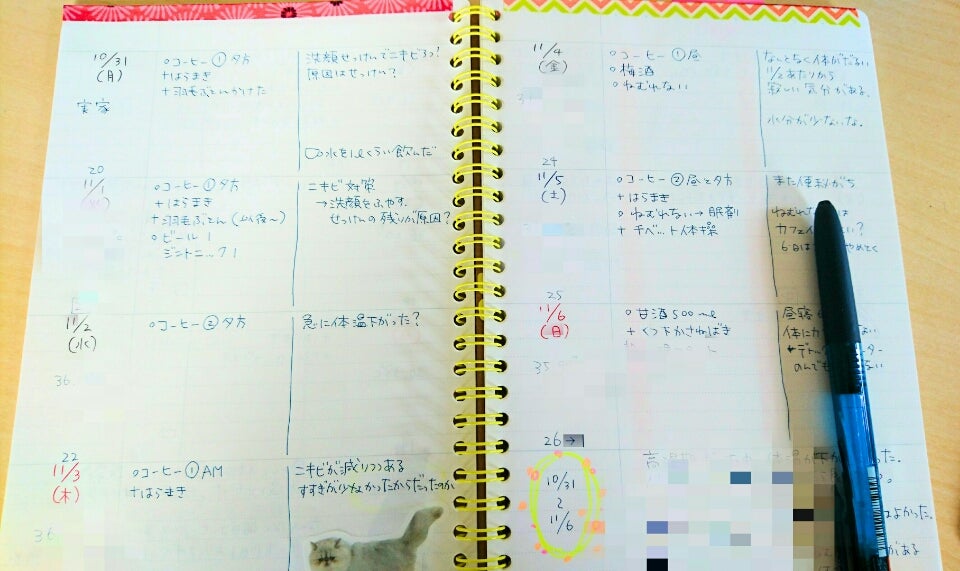 10/31
(月)
実家
○コーヒー① 夕方
+はらまき
+羽毛ぶとんかけた
洗顔せっけんでニキビ3つ!
原因はせっけん?
水を1Lくらい飲んだ
20
11/1
○コーヒー① 夕方
+はらまき
+羽毛ぶとん(以後〜)
○ビール1
ジントニック1
ニキビ対策
→洗顔をふやす。
せっけんの残りが原因?
11/2
(水)
36.
○コーヒー② 夕方
急に体温下がった?
22
11/3
(木)
36
○コーヒー① AM
+はらまき
ニキビが減りつつある
すすぎが少なかったからだったのか
11/4
(金)
○コーヒー① 昼
○梅酒
○ねむれない
なんとなく体がだるい
11/2あたりから
寂しい気分がある。
水分が少ないな。
24
11/5
(土)
○コーヒー② 昼と夕方
+はらまき
○ねむれない→眠剤
+チベット体操
また便秘がち
ねむれ
カフェイ い?
6日は やめてく
25
11/6
(日)
35.9
○甘酒500ml
+くつ下かさねばき
昼寝
体に ない
+デト ター
のんでも ない
26→
10/31
〜
11/6
高温
た。
はよかった。
がある